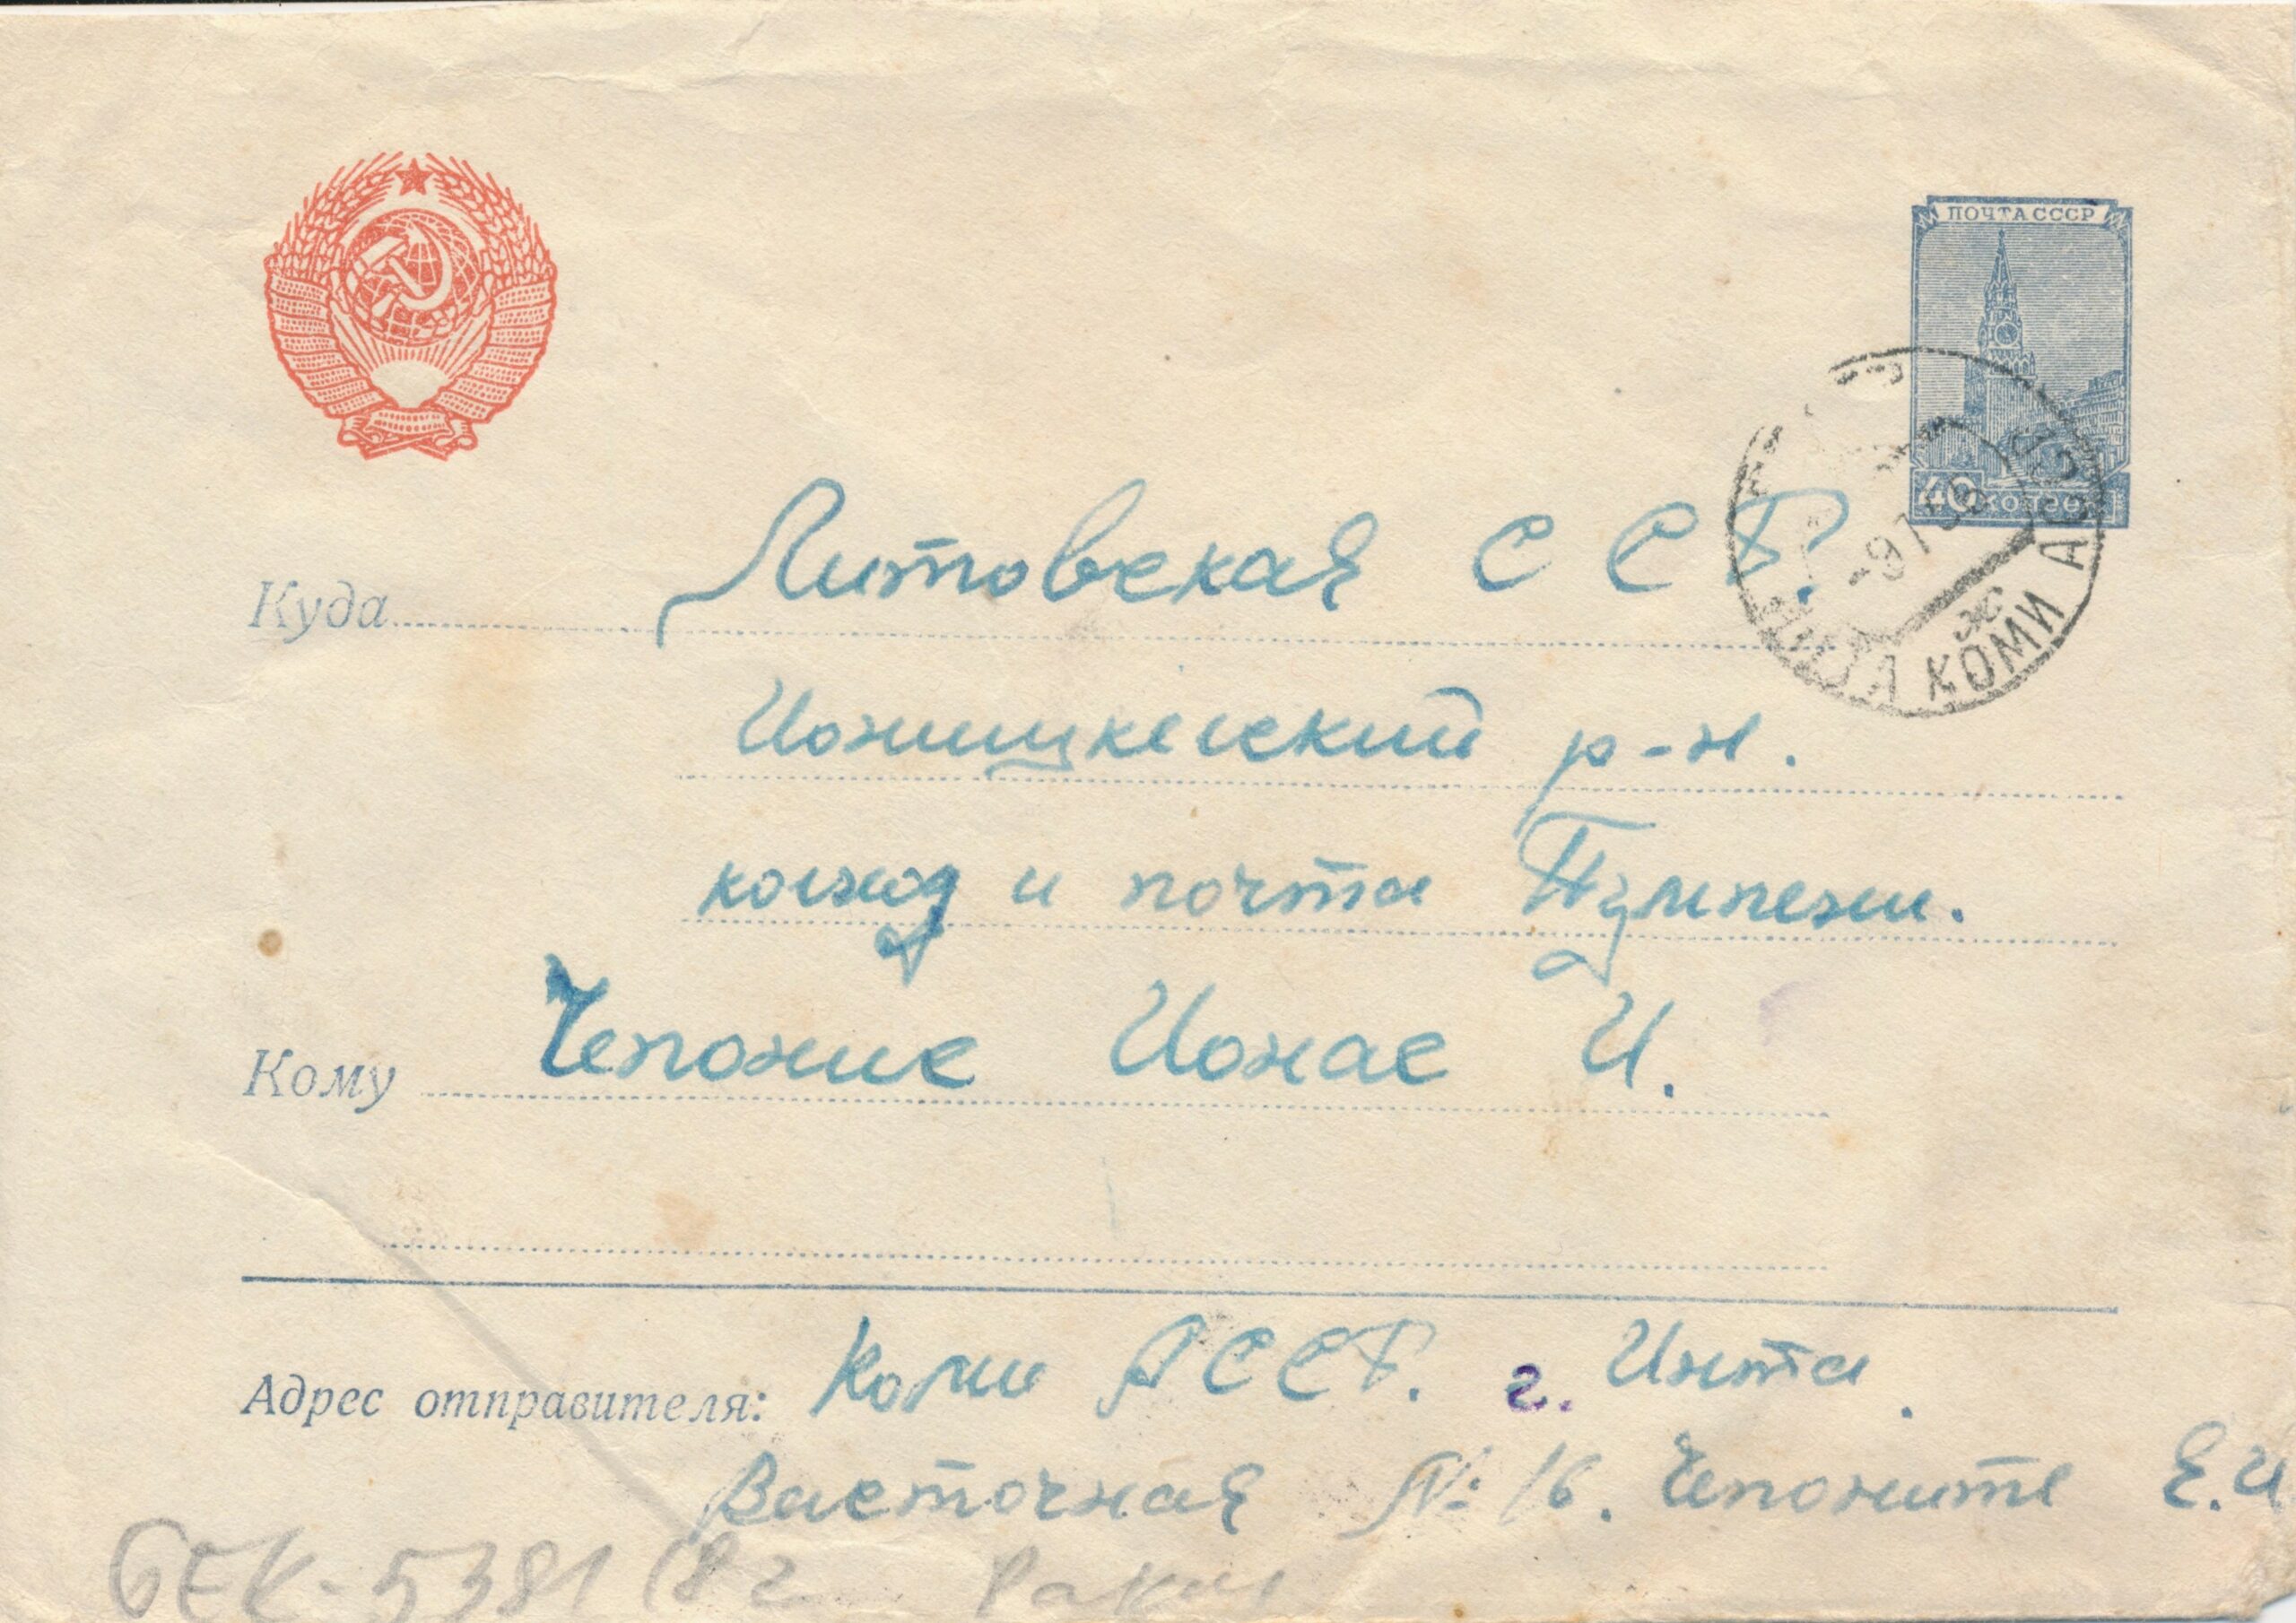 ПОЧТА СССР
40 КОПЕЕК
-9 7 56
ж
КОМИ АССР
Куда Литовская ССР.
Ионишкелский р-н.
колхоз и почта Пумпени.
Кому Чепонис Ионас И.
Адрес отправителя: Коми АССР. г. Инта.
Васточная № 16. Чепоните Е.И
GEK-5381